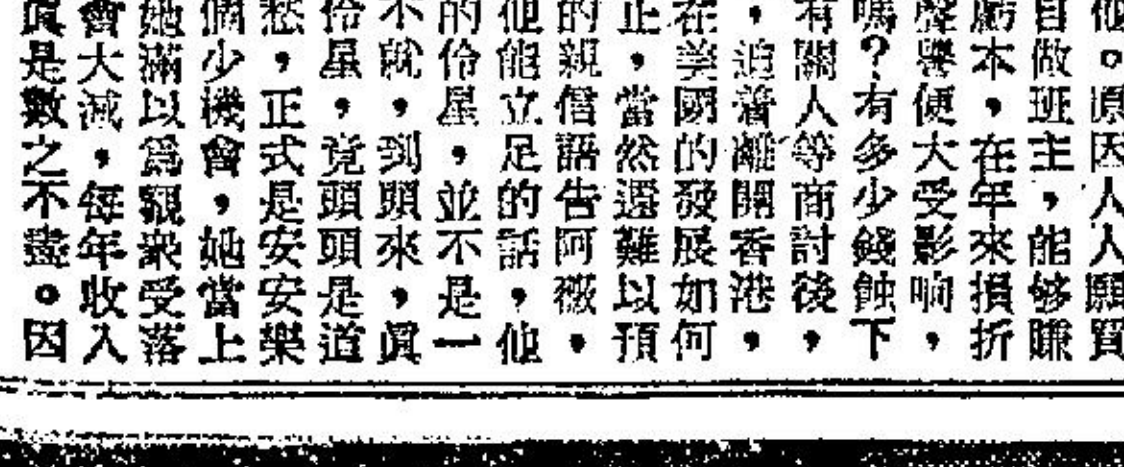 他。原因人人願買
目做班主，能够賺
虧本，在年來損折
聲譽便大受影响，
嗎？有多少錢蝕下
有關人等商討後，
，追着離開香港，
在美國的發展如何
止，當然還難以預
的親信語告阿薇：
他能立足的話，他
的伶星，並不是一
不就，到頭來，眞
伶星，竟頭頭是道
愁，正式是安安樂
個少機會，她當上
她滿以爲觀衆受落
會大減，每年收入
眞是數之不盡。因